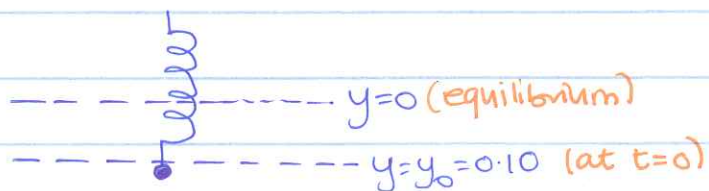 y=0 (equilibrium)
y=y₀=0.10 (at t=0)